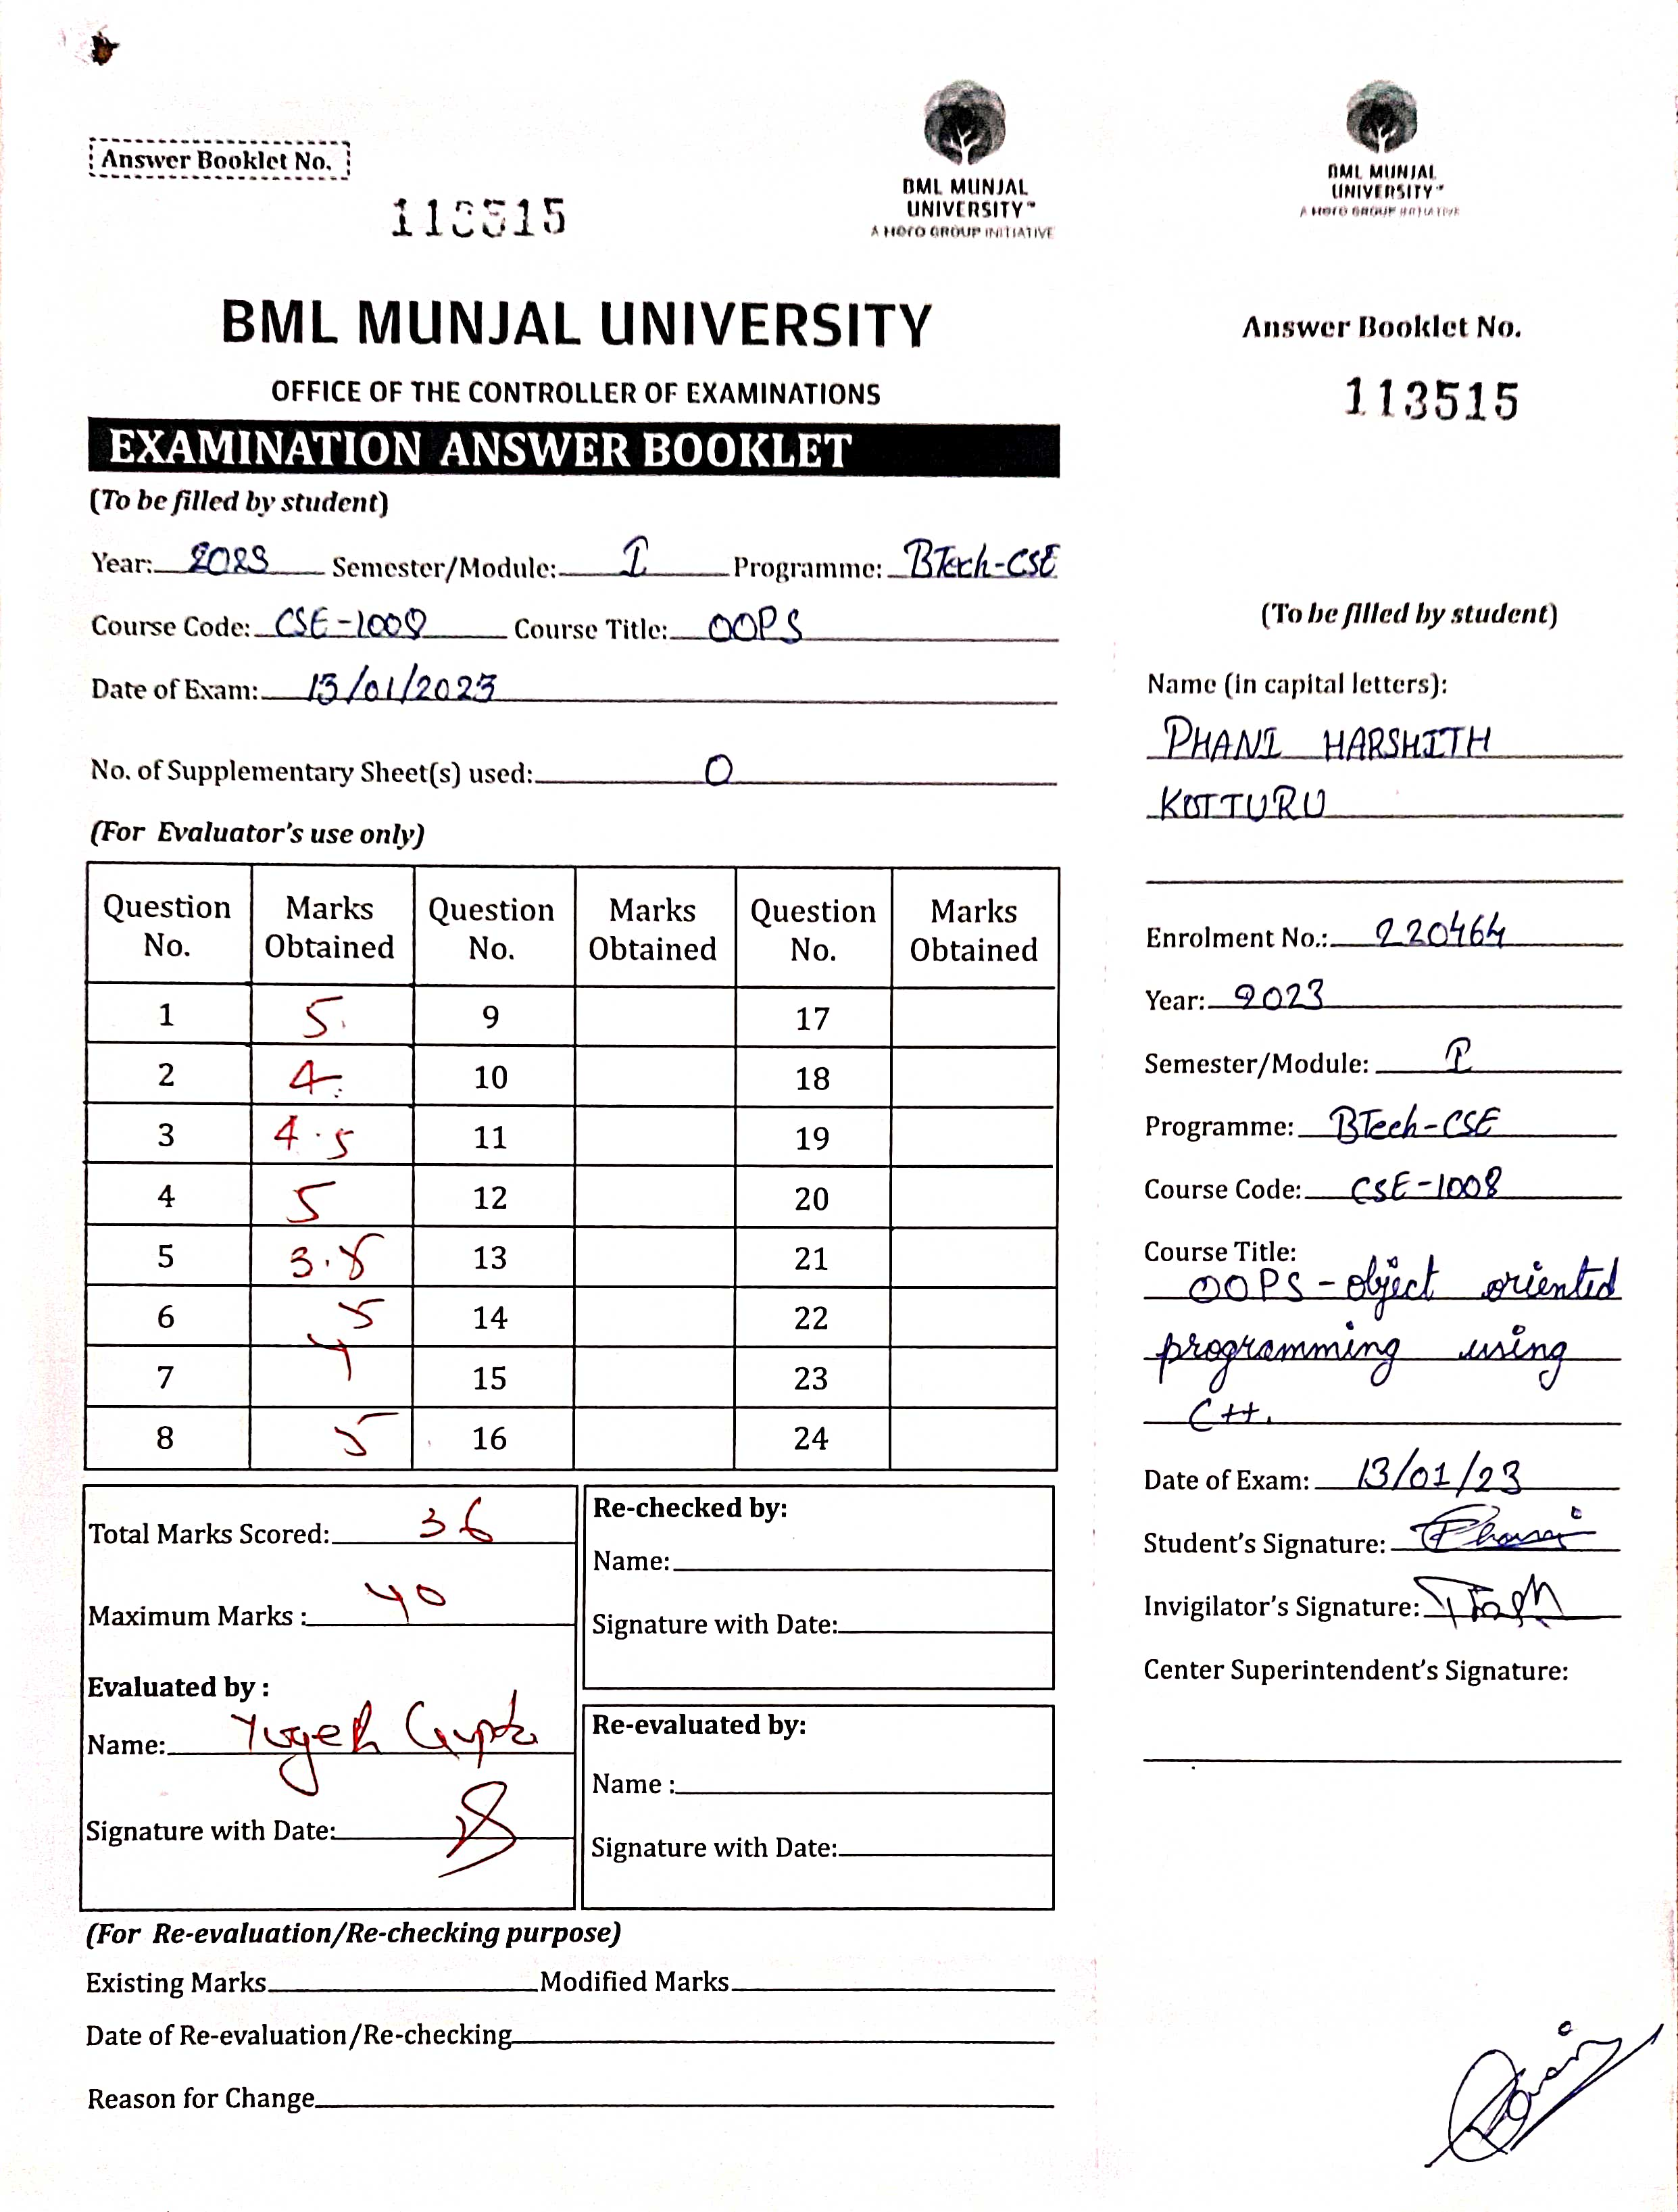 Answer Booklet No.
113515
BML MUNJAL
UNIVERSITY™
A HERO GROUP INITIATIVE
BML MUNJAL UNIVERSITY
OFFICE OF THE CONTROLLER OF EXAMINATIONS
EXAMINATION ANSWER BOOKLET
(To be filled by student)
Year: 2023 Semester/Module: I Programme: BTech-CSE
Course Code: CSE-1008 Course Title: OOPS
Date of Exam: 13/01/2023
No. of Supplementary Sheet(s) used: 0
(For Evaluator's use only)
Question No. Marks Obtained Question No. Marks Obtained Question No. Marks Obtained
1 5 9 17
2 4 10 18
3 4.5 11 19
4 5 12 20
5 3.5 13 21
6 5 14 22
7 4 15 23
8 5 16 24
Total Marks Scored: 36
Maximum Marks : 40
Evaluated by :
Name: Yogesh Gupta
Signature with Date:
Re-checked by:
Name:
Signature with Date:
Re-evaluated by:
Name :
Signature with Date:
(For Re-evaluation/Re-checking purpose)
Existing Marks Modified Marks
Date of Re-evaluation/Re-checking
Reason for Change
BML MUNJAL
UNIVERSITY™
A HERO GROUP INITIATIVE
Answer Booklet No.
113515
(To be filled by student)
Name (in capital letters):
PHANI HARSHITH
KOTTURU
Enrolment No.: 220464
Year: 2023
Semester/Module: I
Programme: BTech-CSE
Course Code: CSE-1008
Course Title:
OOPS - object oriented
programming using
C++.
Date of Exam: 13/01/23
Student's Signature:
Invigilator's Signature:
Center Superintendent's Signature: